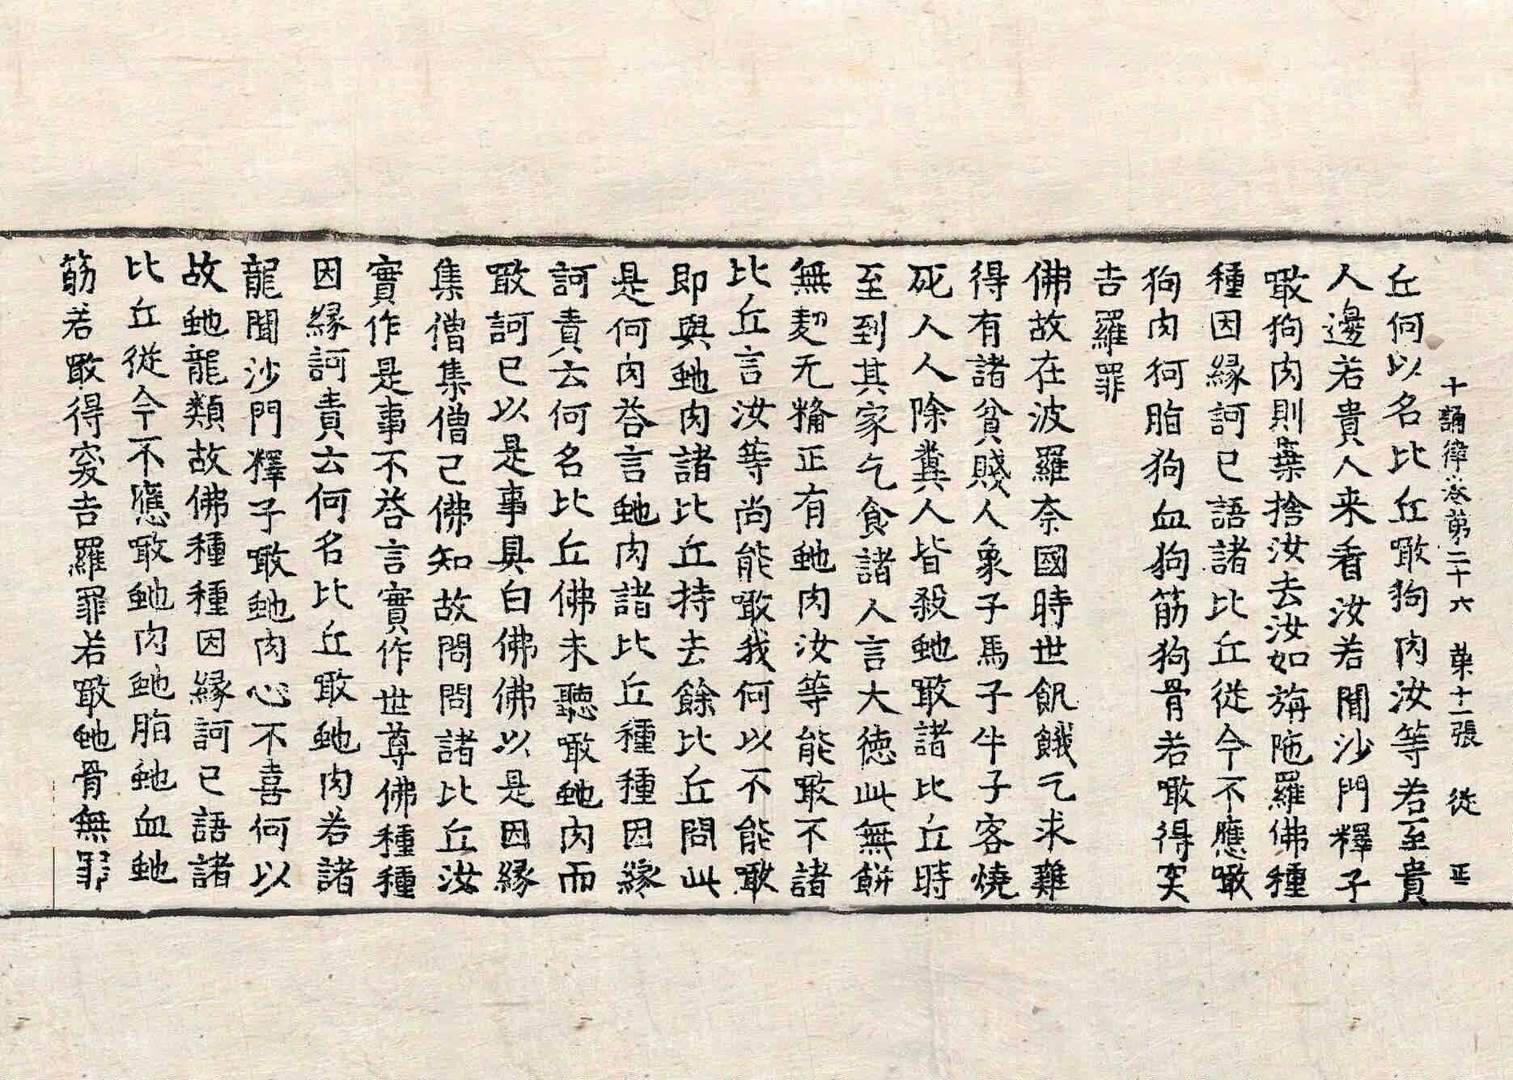 十誦律卷第二十六 苐十二張 從 正
丘何以名比丘噉狗肉汝等若至貴
人邊若貴人来看汝若聞沙門釋子
噉狗肉則棄捨汝去汝如旃陁羅佛種
種因緣訶已語諸比丘從今不應噉
狗肉狗脂狗血狗筋狗骨若噉得突
吉羅罪
佛故在波羅奈國時世飢餓乞求難
得有諸貧賤人象子馬子牛子客燒
死人人除糞人皆殺虵噉諸比丘時
至到其家乞食諸人言大德此無餅
無麨无糒正有虵肉汝等能噉不諸
比丘言汝等尚能噉我何以不能噉
即與虵肉諸比丘持去餘比丘問此
是何肉荅言虵肉諸比丘種種因緣
訶責云何名比丘佛未聽噉虵肉而
噉訶已以是事具白佛佛以是因緣
集僧集僧已佛知故問問諸比丘汝
實作是事不荅言實作世尊佛種種
因緣訶責云何名比丘噉虵肉若諸
龍聞沙門釋子噉虵肉心不喜何以
故虵龍類故佛種種因緣訶已語諸
比丘從今不應噉虵肉虵脂虵血虵
筋若噉得突吉羅罪若噉虵骨無罪